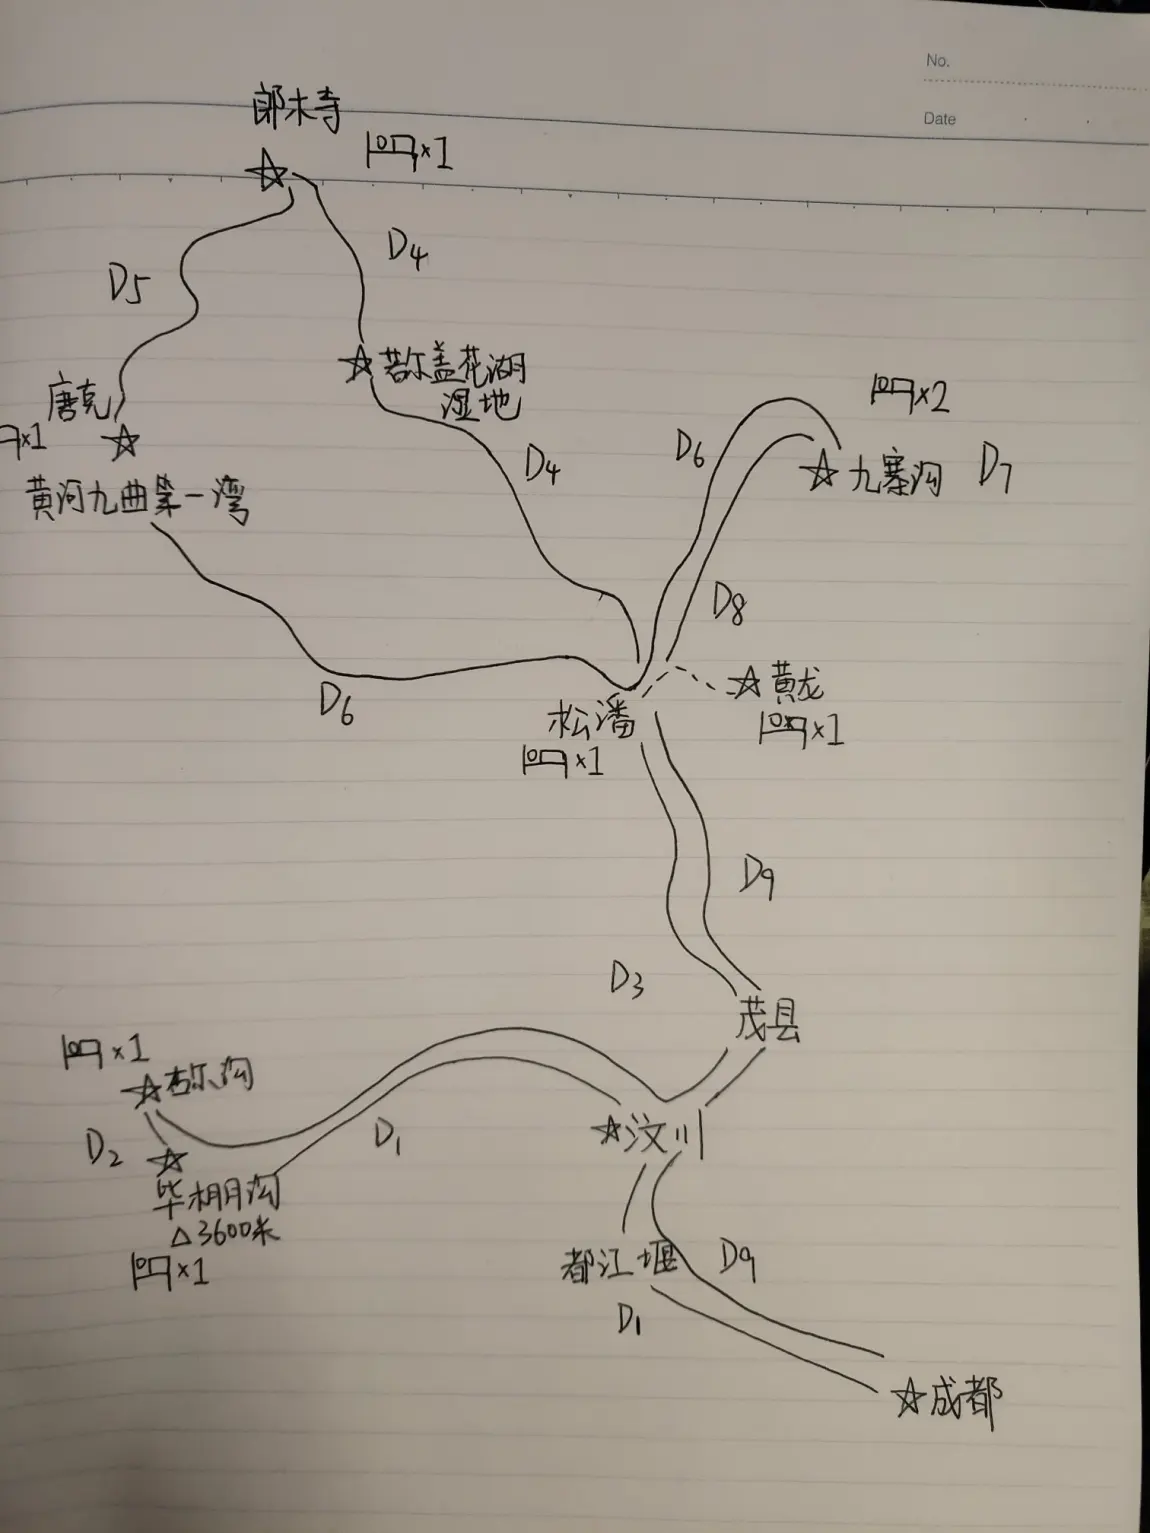 No.
Date
郎木寺
×1
D4
D5
若尔盖花湖
湿地
唐克
×1
黄河九曲第一湾
D4
×2
D6
九寨沟 D7
D8
黄龙
×1
D6
松潘
×1
D9
D3
茂县
×1
古尔沟
D2
D1
汶川
毕棚沟
△3600米
×1
都江堰
D9
D1
成都